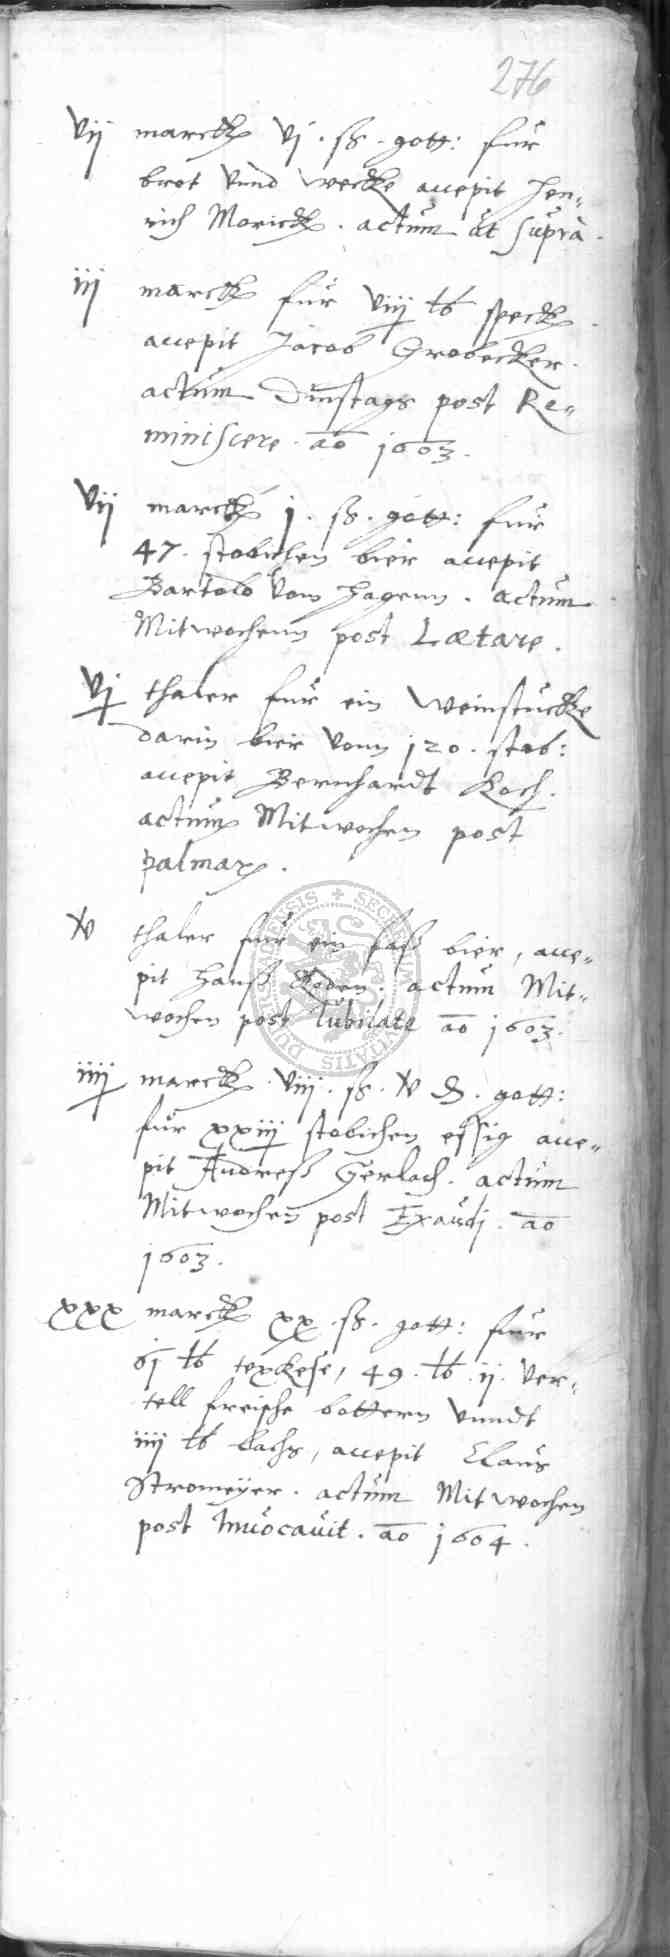 276
vij marck vj . ß . gott: fur
brot vnnd wecke accepit Hen-
rich Morick . actum ut supra .
iij marck fur viiij lb speck
accepit Jacob Grobecker .
actum Dinstags post Re-
miniscere . ao 1603 .
vij marck j . ß . gott: fur
47 . stobichen bier accepit
Bartold vom Hagenn . actum
Mitwochenn post Lætare .
vj thaler fur ein weinstucke
darin bier vonn 120 . stob:
accepit Bernhardt Koch .
actum Mitwochen post
palmar .
v thaler fur ein faß bier, acce-
pit Hanß . actum Mit-
wochen post Jubilate ao 1603 .
iiij marck . viij . ß . v d . gott:
fur xxiij stobichen essig acce-
pit Andreß Gerlach . actum
Mitwochen post Exaudi . ao
1603 .
xxx marck xx . ß . gott: fur
lb , 49 . lb . ij . ver-
tell freische bottern vnndt
iiij lb lachs, accepit Claus
Stromeyer . actum Mitwochen
post Inuocauit . ao 1604 .
SECRETUM CIVITATIS DUDERSTADENSIS